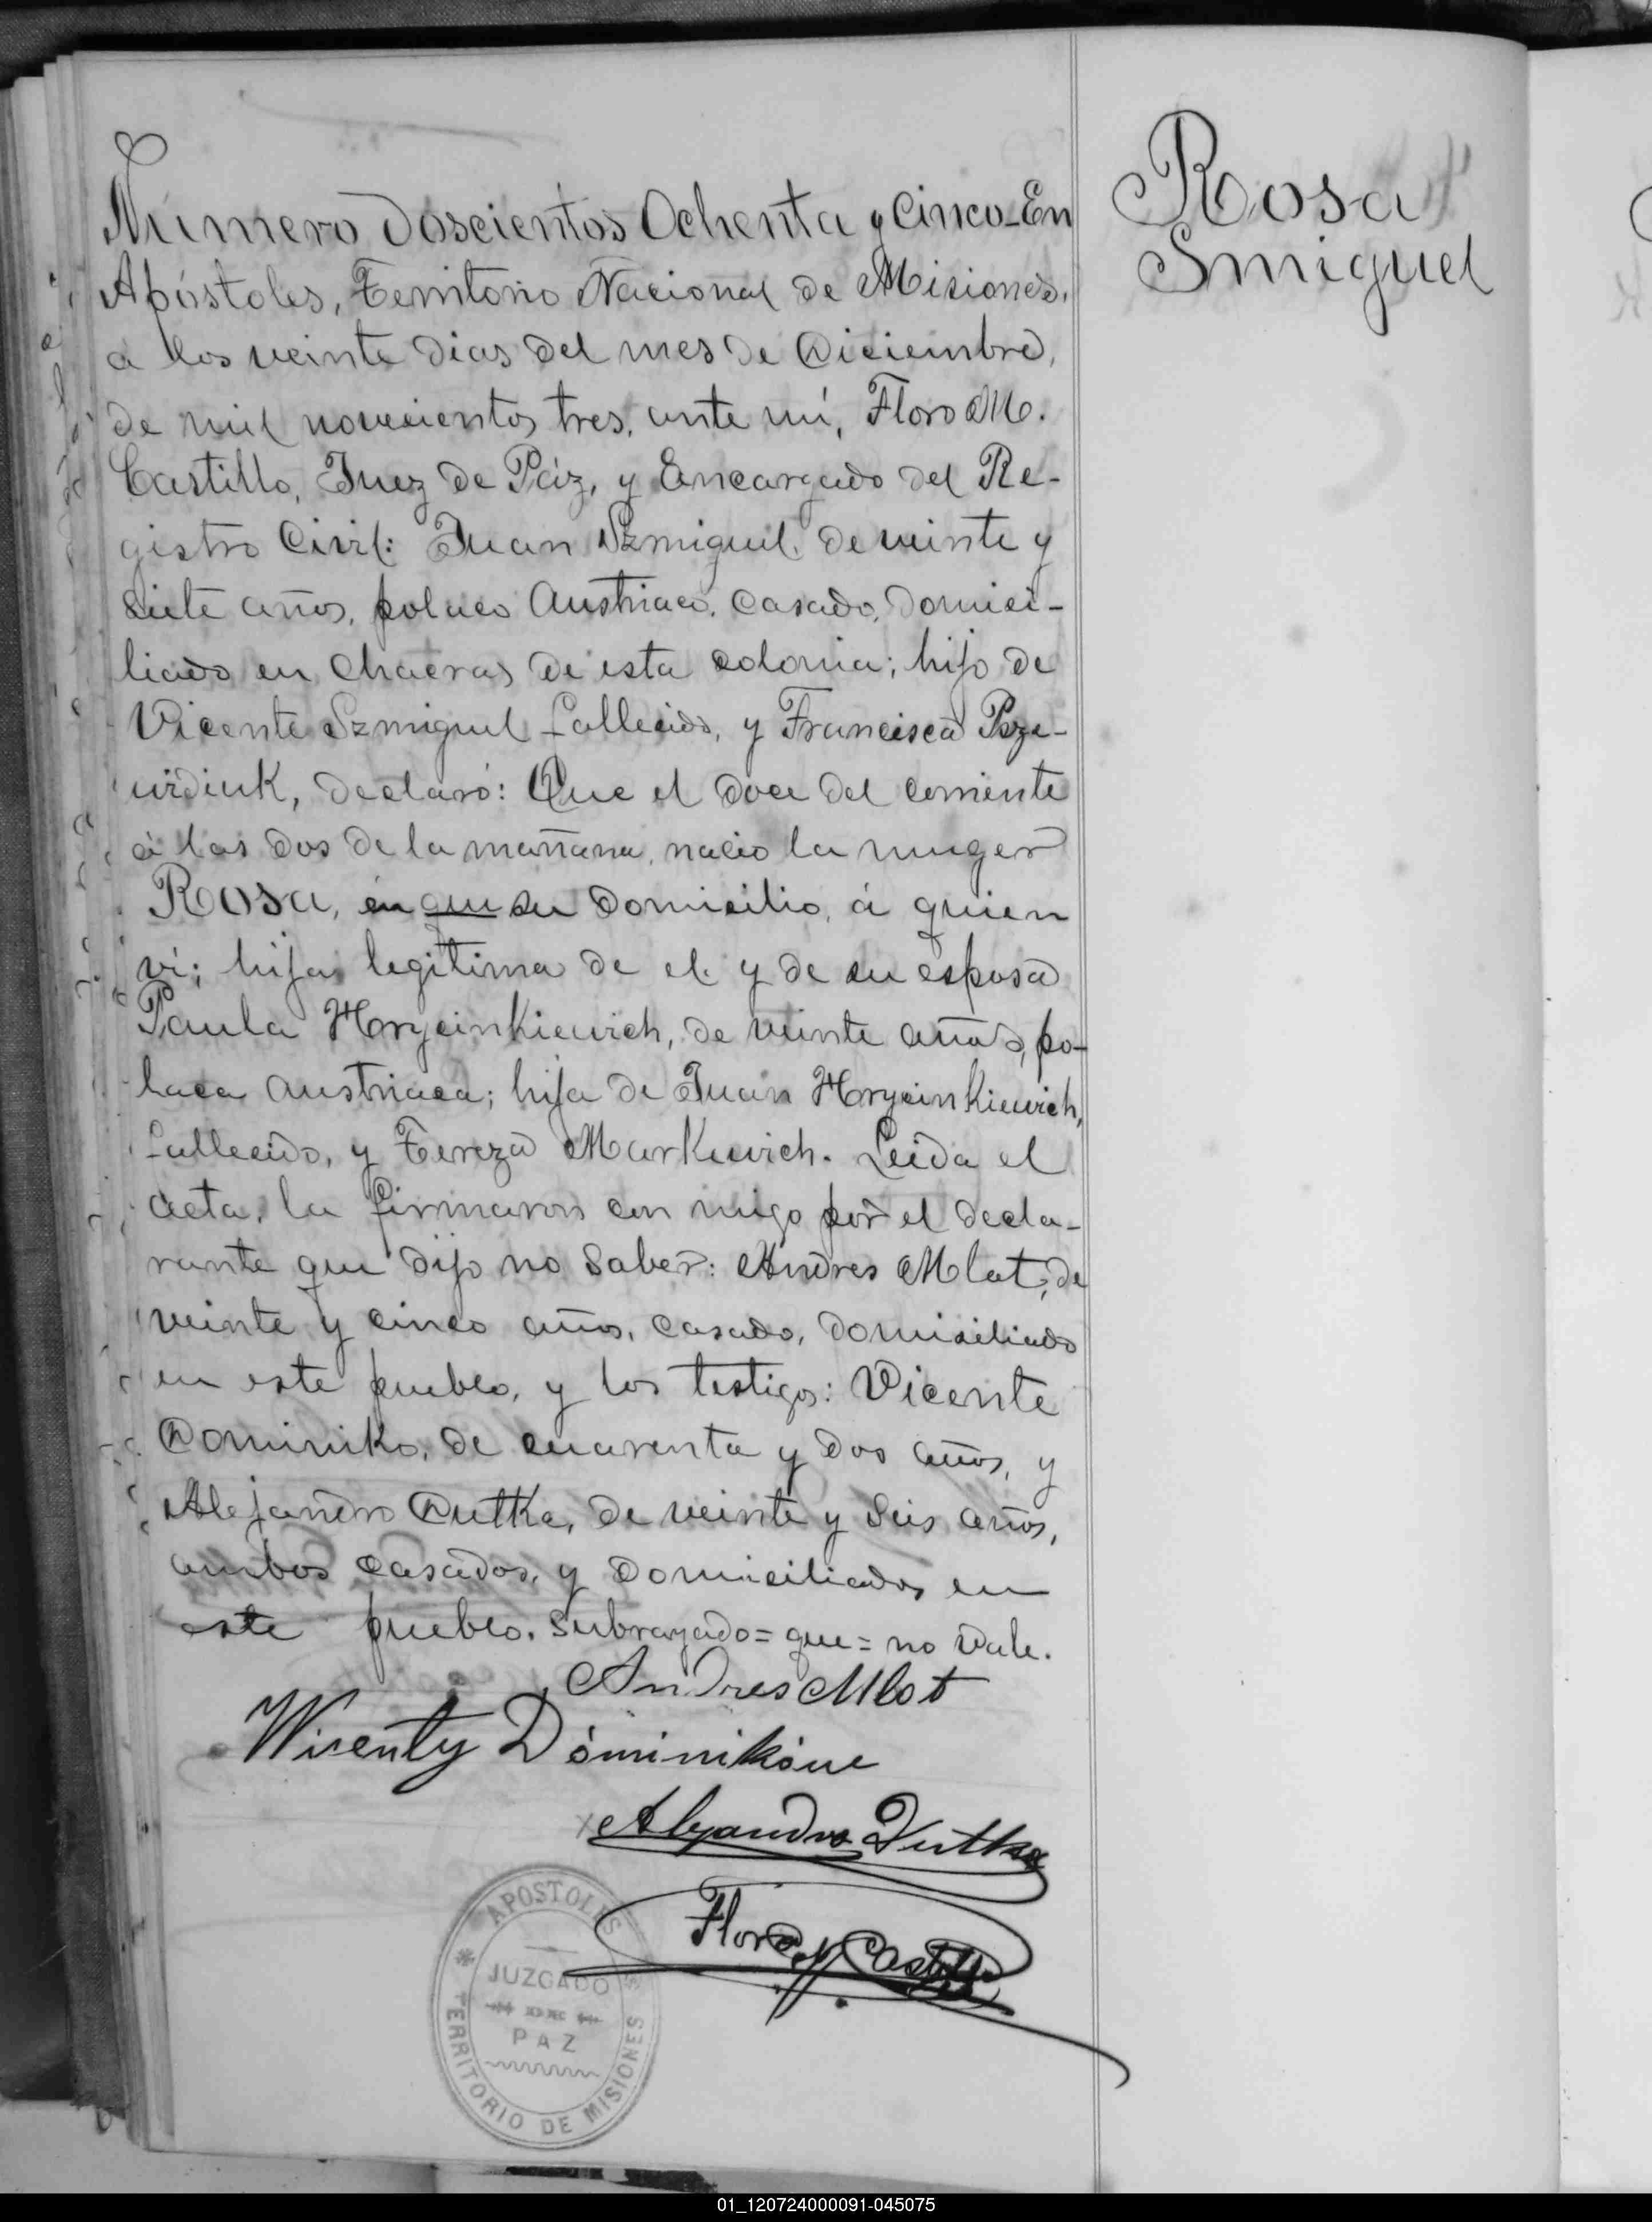 Número Doscientos Ochenta y Cinco_En
Apóstoles, Territorio Nacional de Misiones,
a los veinte dias del mes de Diciembre,
de mil novecientos tres, ante mí, Floro M.
Castillo, Juez de Páz, y Encargado del Re-
gistro Civil: Juan Szmiguil, de veinte y
siete años, polaco Austriaco, casado, domici-
liado en chacras de esta colonia; hijo de
Vicente Szmiguel fallecido, y Francisca
declaró: Que el doce del corriente
á las dos de la mañana, nacio la muger
Rosa, en que su domicilio, á quien
ví; hija legitima de el y de su esposa
Paula Hrycinkiewich, de veinte años, po-
laca austriaca; hija de Juan Hrycinkiewich,
fallecido, y Tereza Markievich. Leida el
acta, la firmaron con migo por el decla-
rante que dijo no saber: Andres Mlot, de
veinte y cinco años, casado, domiciliado
en este pueblo, y los testigos: Vicente
Dominiko, de cuarenta y dos años, y
Alejandro Dutka, de veinte y seis años,
ambos casados, y domiciliados en
este pueblo. Subrayado=que=no vale.
Andres Mlot
Wicenty Dóminików
Alejandro Dutka
Floro M Castillo
APOSTOLES
JUZGADO
PAZ
TERRITORIO DE MISIONES
Rosa
Smiguel
01_120724000091-045075